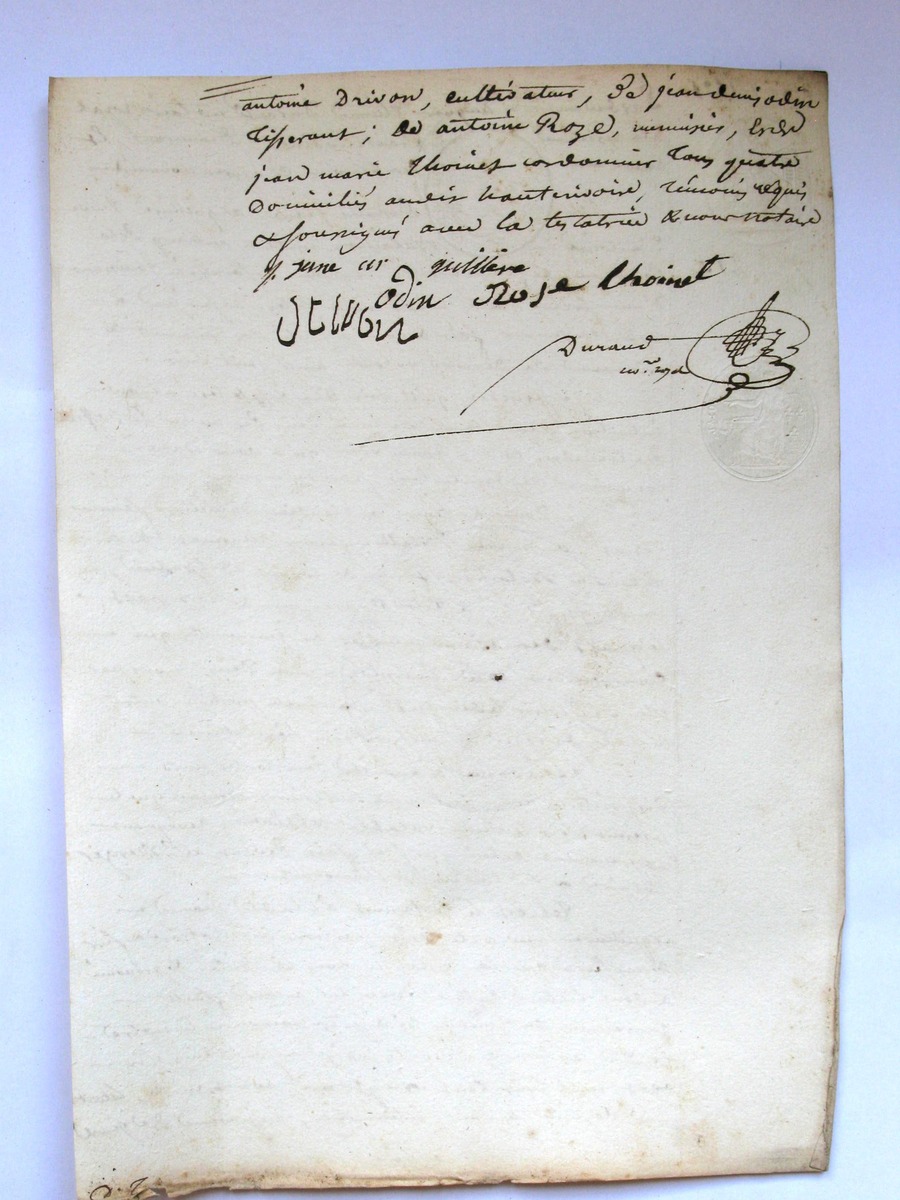 antoine Drivon, cultivateur, De jean denis odin
tisserant; de antoine Roze, menuisier, & de
jean marie thoinet cordonnier tous quatre
Domiciliés audit hauterivoire, témoins requis
& soussignés avec la testatrice & nous notaire
odin Roze thoinet
Durand